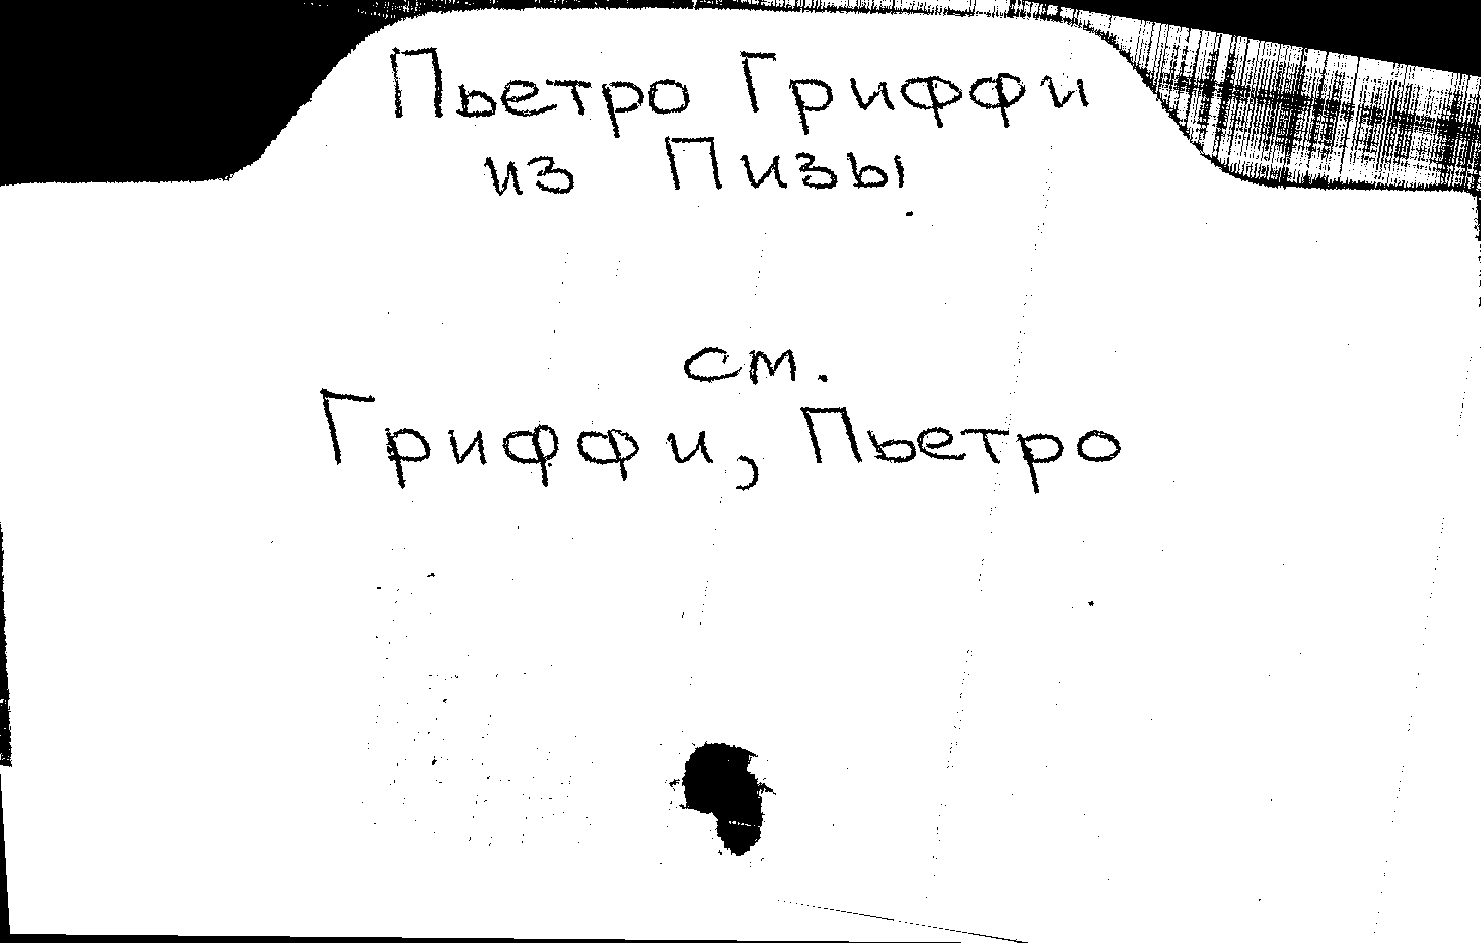 Пьетро Гриффи
из Пизы
см.
Гриффи, Пьетро